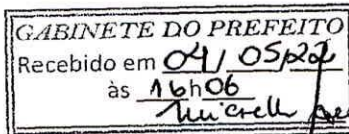 GABINETE DO PREFEITO
Recebido em 04/05/22
às 16h06